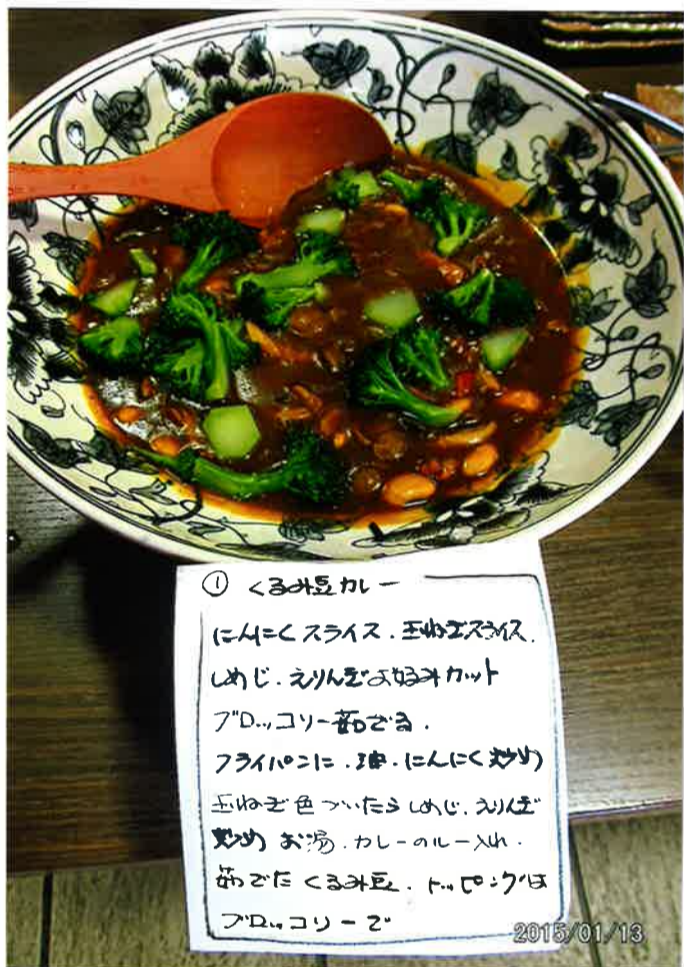 ① くるみ豆カレー
にんにくスライス．玉ねぎスライス．
しめじ．えりんぎお好みカット
ブロッコリー茹でる．
フライパンに．油．にんにく炒め
玉ねぎ色ついたらしめじ．えりんぎ
炒め お湯．カレーのルー入れ．
茹でた くるみ豆．トッピングは
ブロッコリーで
2015/01/13